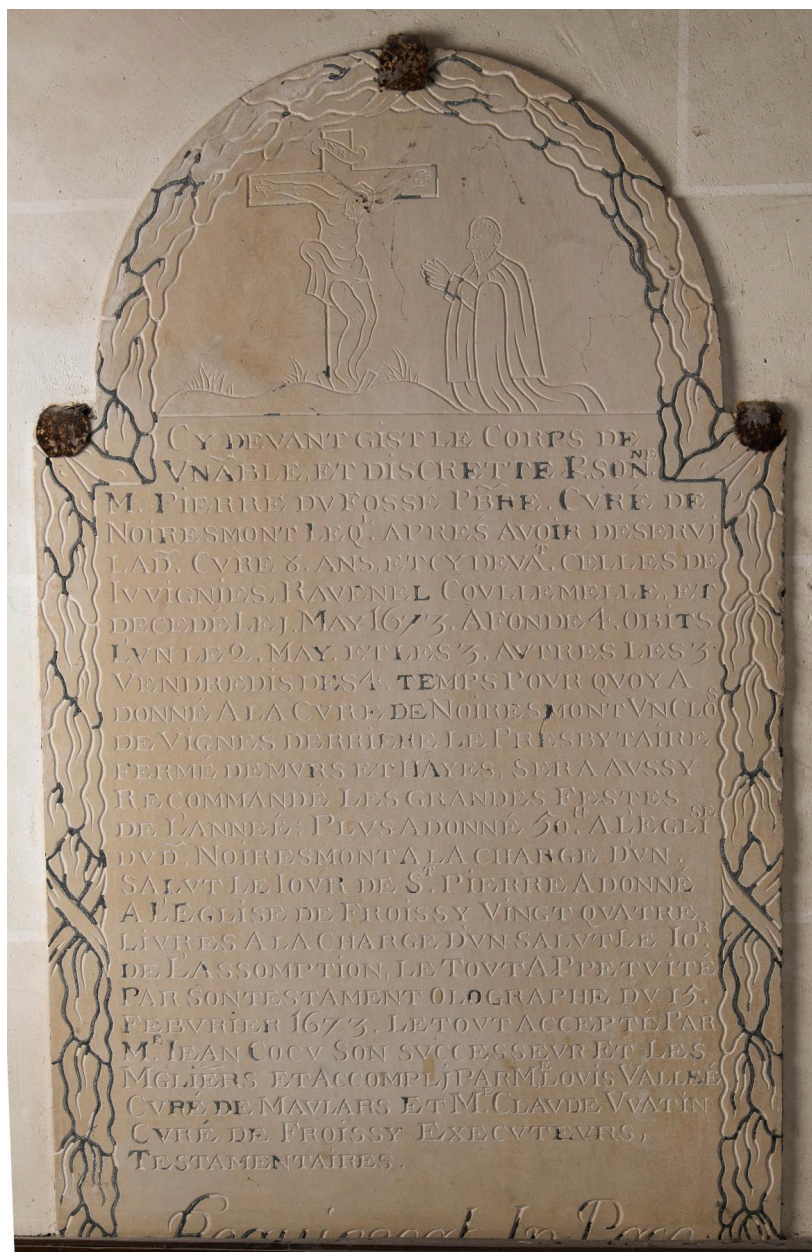 INRI
CY DEVANT GIST LE CORPS DE
VN̄ÂBLE, ET DISCRETTE P̱SON.NE
M. PIERRE DV FOSSE PB̃RE. CVRÉ DE
NOIRESMONT LEQ.L APRES AVOIR DESERVJ
LAD̃. CVRE 8. ANS, ET CY DEVĀT. CELLES DE
IVVIGNIES, RAVENEL COVLLEMELLE, ET
DECEDÉ LE J. MAY 1673. A FONDE 4. OBITS
L'VN LE 2. MAY. ET LES 3. AVTRES LES 3.
VENDREDIS DES 4. TEMPS POVR QVOY A
DONNÉ A LA CVRE DE NOIRESMONT VN CLOS
DE VIGNES DERRIERE LE PRESBYTAIRE
FERMÉ DE MVRS ET HAYES, SERA AVSSY
RECOMMANDÉ LES GRANDES FESTES
DE L'ANNEÉ: PLVS A DONNÉ 50.tt A L'EGLISE
DVD̃. NOIRESMONT A LA CHARGE D'VN.
SALVT LE IOVR DE S.T PIERRE A DONNÉ
A L'EGLISE DE FROISSY VINGT QVATRE
LIVRES A LA CHARGE D'VN SALVT LE IO.R
DE LASSOMPTION, LE TOVT A P̱PETVITÉ
PAR SON TESTAMENT OLOGRAPHE DV 15.
FEBVRIER 1673. LE TOVT ACCEPTÉ PAR
M.R IEAN COCV SON SVCCESSEVR ET LES
MGLIER̃S ET ACCOMPLJ PAR M.E LOVIS VALLEÉ
CVRÉ DE MAVLARS ET M.E CLAVDE VVATIN
CVRÉ DE FROISSY EXECVTEVRS,
TESTAMENTAIRES.
Requiescat In Pace